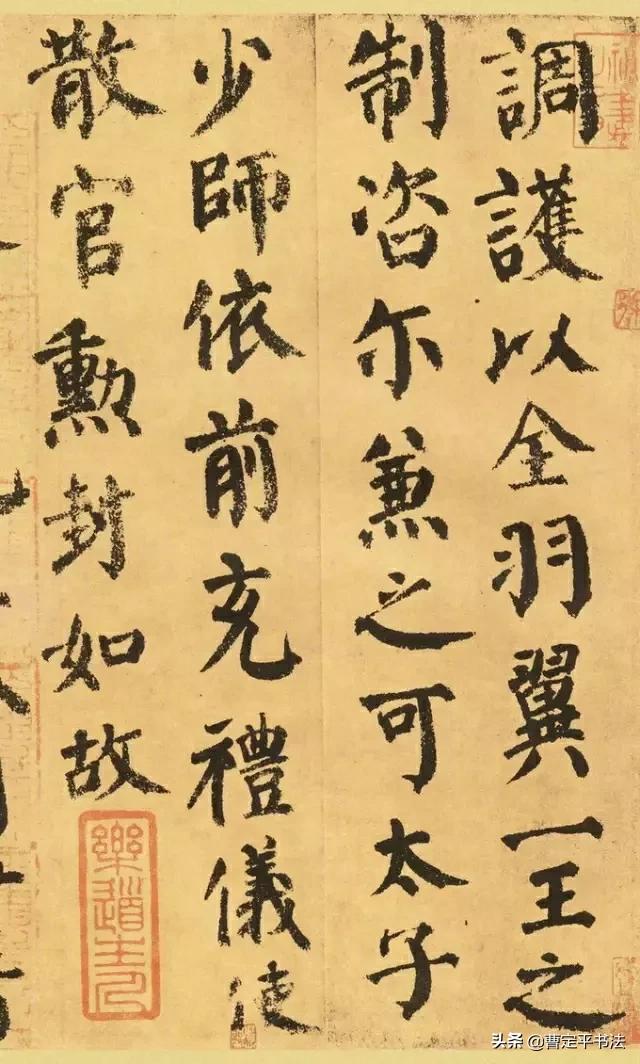 調護以全羽翼一王之
制咨尔兼之可太子
少師依前充禮儀使
散官勳封如故
头条 @曹定平书法